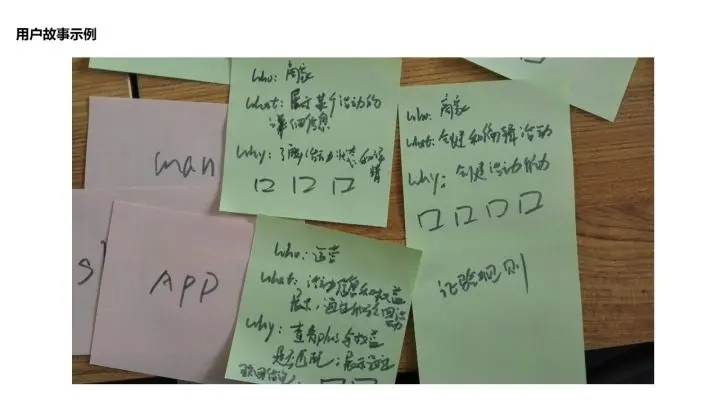 用户故事示例
who: 商家
what: 展示某个活动的
详细信息
why: 了解活动状态和详
情
who: 商家
what: 创建和编辑活动
why: 创建活动
体验规则
man
APP
who: 运营
what: 活动信息和权益
展示,通过和
why: 查看plus与权益
是否匹配;展示